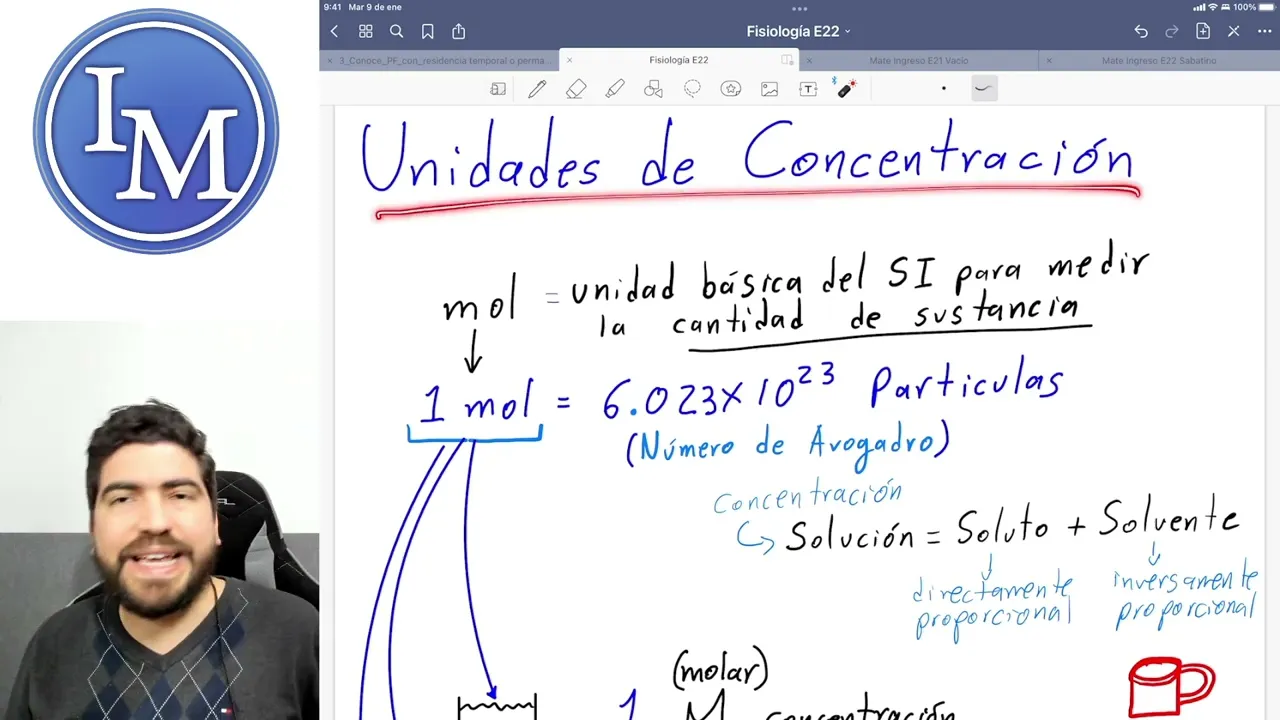 IM
9:41 Mar 9 de ene
100%
Fisiología E22
3_Conoce_PF_con_residencia temporal o perma...
Fisiología E22
Mate Ingreso E21 Vacio
Mate Ingreso E22 Sabatino
Unidades de Concentración
mol = unidad básica del SI para medir
la cantidad de sustancia
1 mol = 6.023x10²³ Particulas
(Número de Avogadro)
Concentración
Solución = Soluto + Solvente
directamente
proporcional
inversamente
proporcional
(molar)
1 M concentración